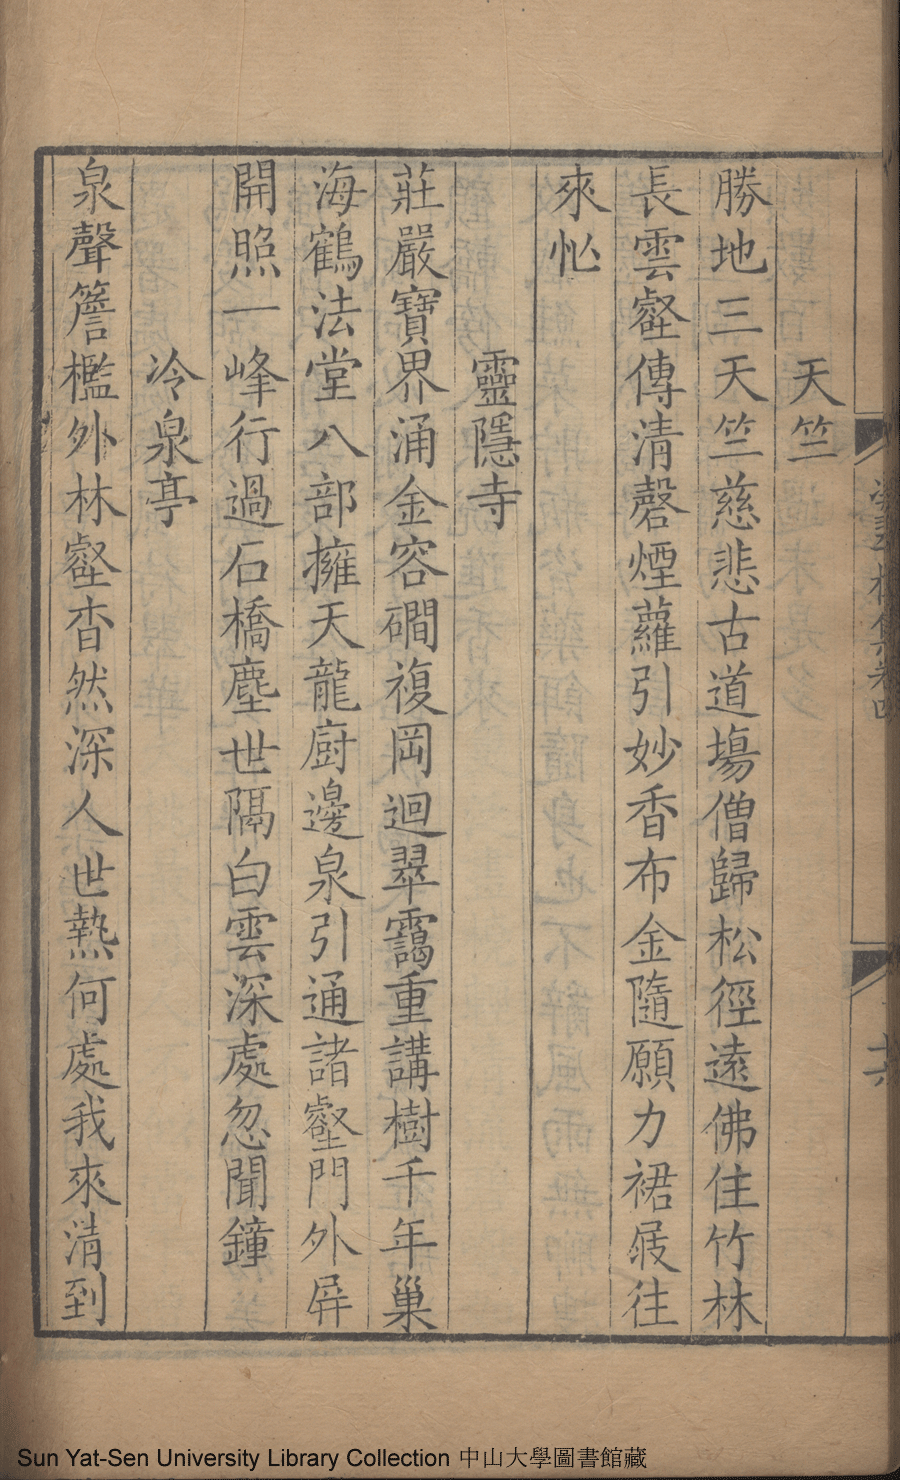 天竺
勝地三天竺慈悲古道塲僧歸松徑遠佛住竹林
長雲壑傳清磬煙蘿引妙香布金隨願力裙屐往
來忙
靈隱寺
莊嚴寶界涌金容磵複岡迴翠靄重講樹千年巢
海鶴法堂八部擁天龍廚邊泉引通諸壑門外屏
開照一峰行過石橋塵世隔白雲深處忽聞鐘
冷泉亭
泉聲簷檻外林壑杳然深人世熱何處我來清到
Sun Yat-Sen University Library Collection 中山大學圖書館藏